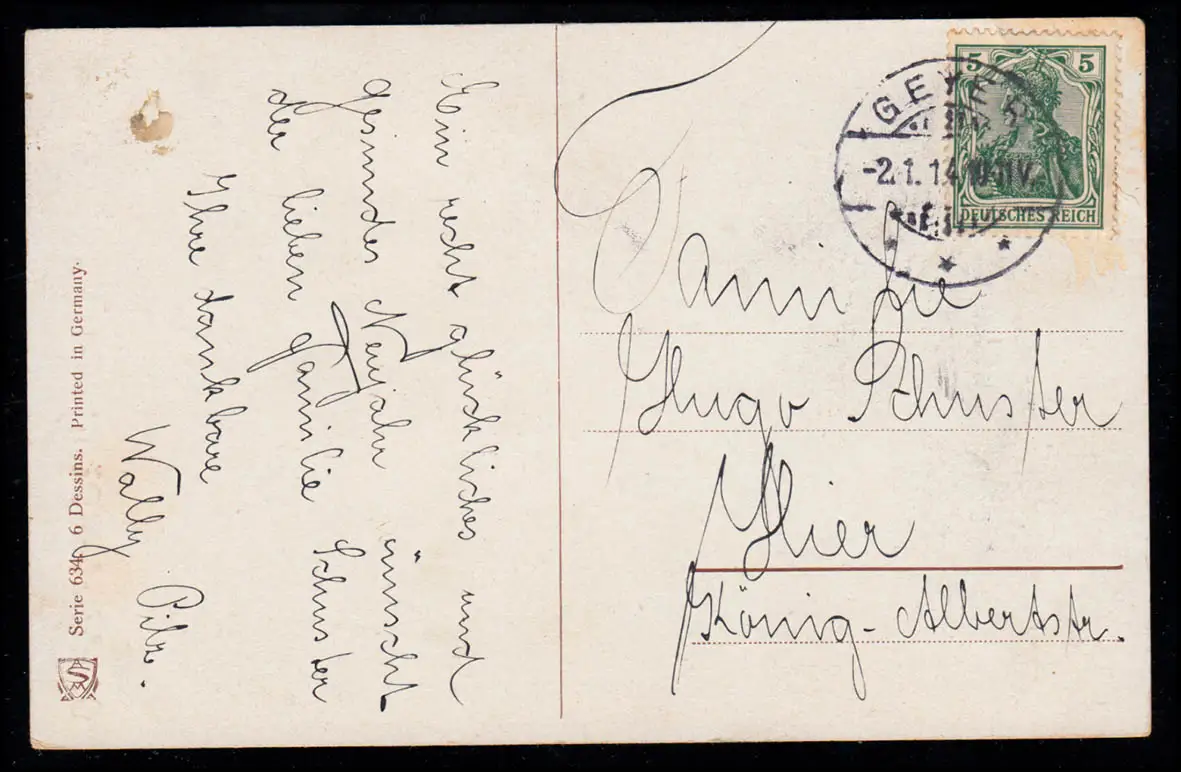 Ein recht glückliches und
gesundes Neujahr wünscht
der lieben Familie Schuster
Ihre dankbare
Wally Pilz.
Serie 634. 6 Dessins. Printed in Germany.
5 5
DEUTSCHES REICH
GEYER
-2.1.14.10-11V.
Familie
Hugo Schuster
Hier
König-Albertstr.